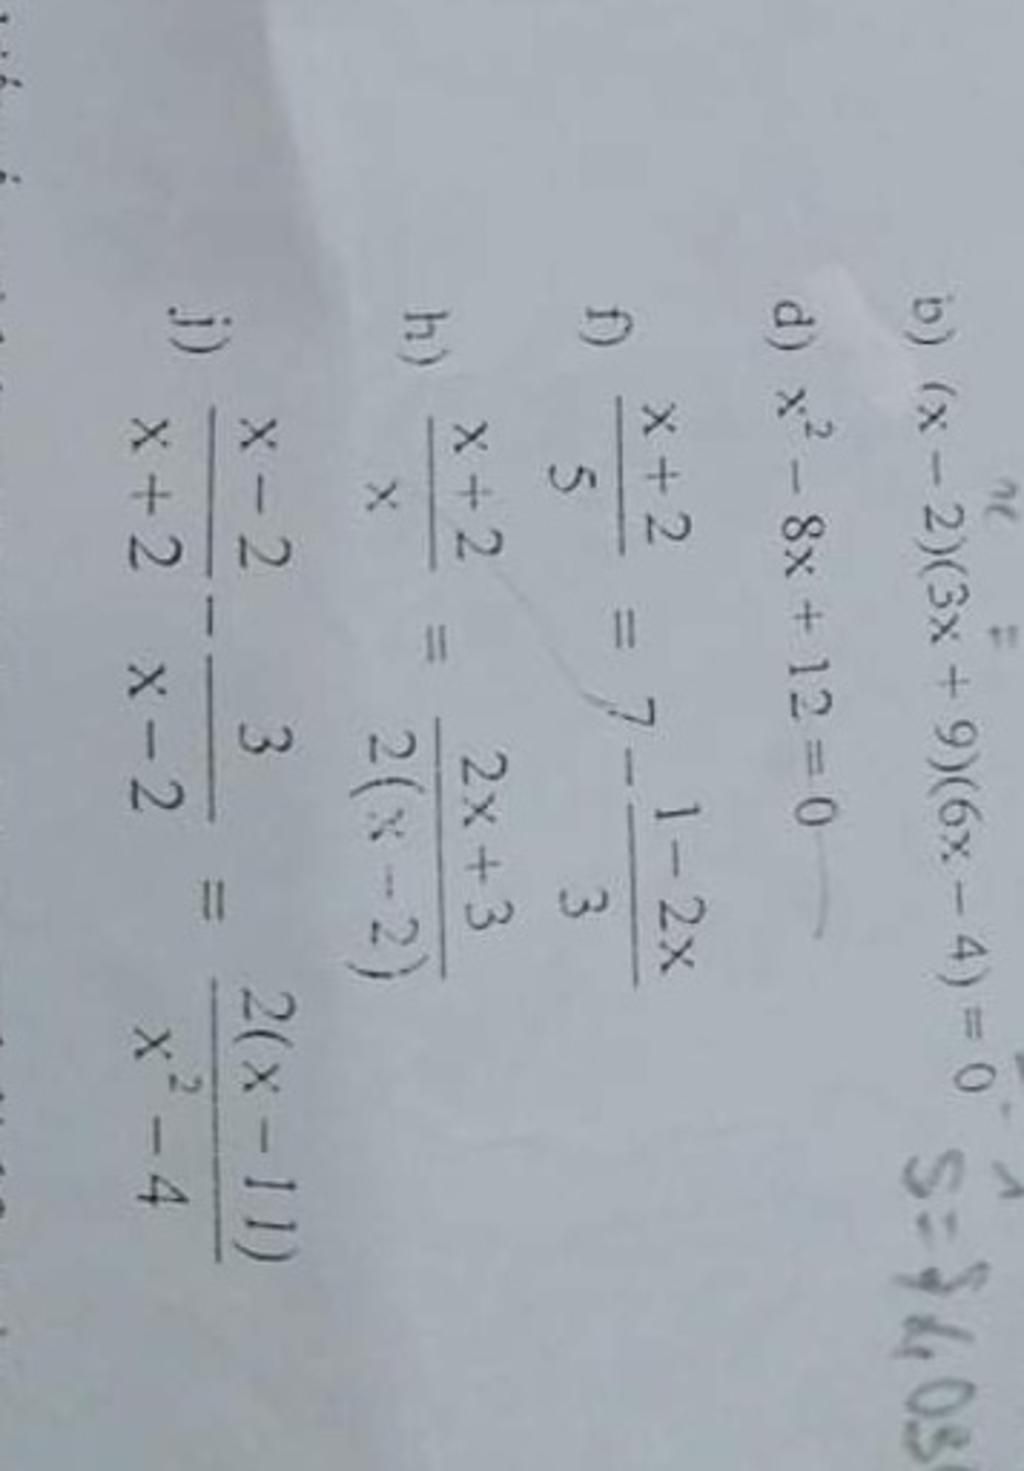 b) (x − 2)(3x + 9)(6x − 4) = 0
d) x² − 8x + 12 = 0
f) (x + 2)/5 = 7 − (1 − 2x)/3
h) (x + 2)/x = (2x + 3)/(2(x − 2))
j) (x − 2)/(x + 2) − 3/(x − 2) = 2(x − 11)/(x² − 4)